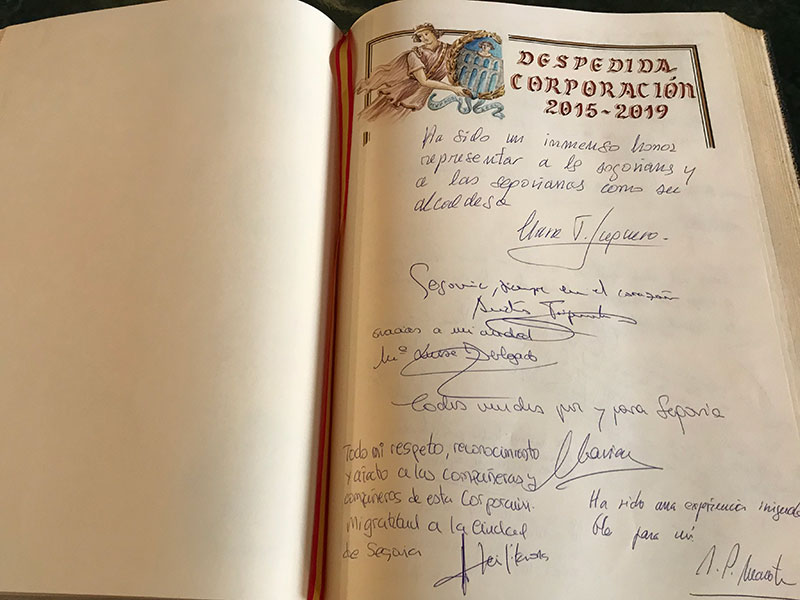 DESPEDIDA
CORPORACIÓN
2015-2019
Ha sido un inmenso honor
representar a ls segovianos y
a las segovianas como su
alcaldesa
Clara
Segovia, siempre en el corazón
Andrés
Gracias a mi ciudad
Mª Delgado
Todos unidos por y para Segovia
Todo mi respeto, reconocimiento
y afecto a las compañeras y
compañeros de esta Corporación.
Mi gratitud a la Ciudad
de Segovia
Ha sido una experiencia iniguala
ble para mí.